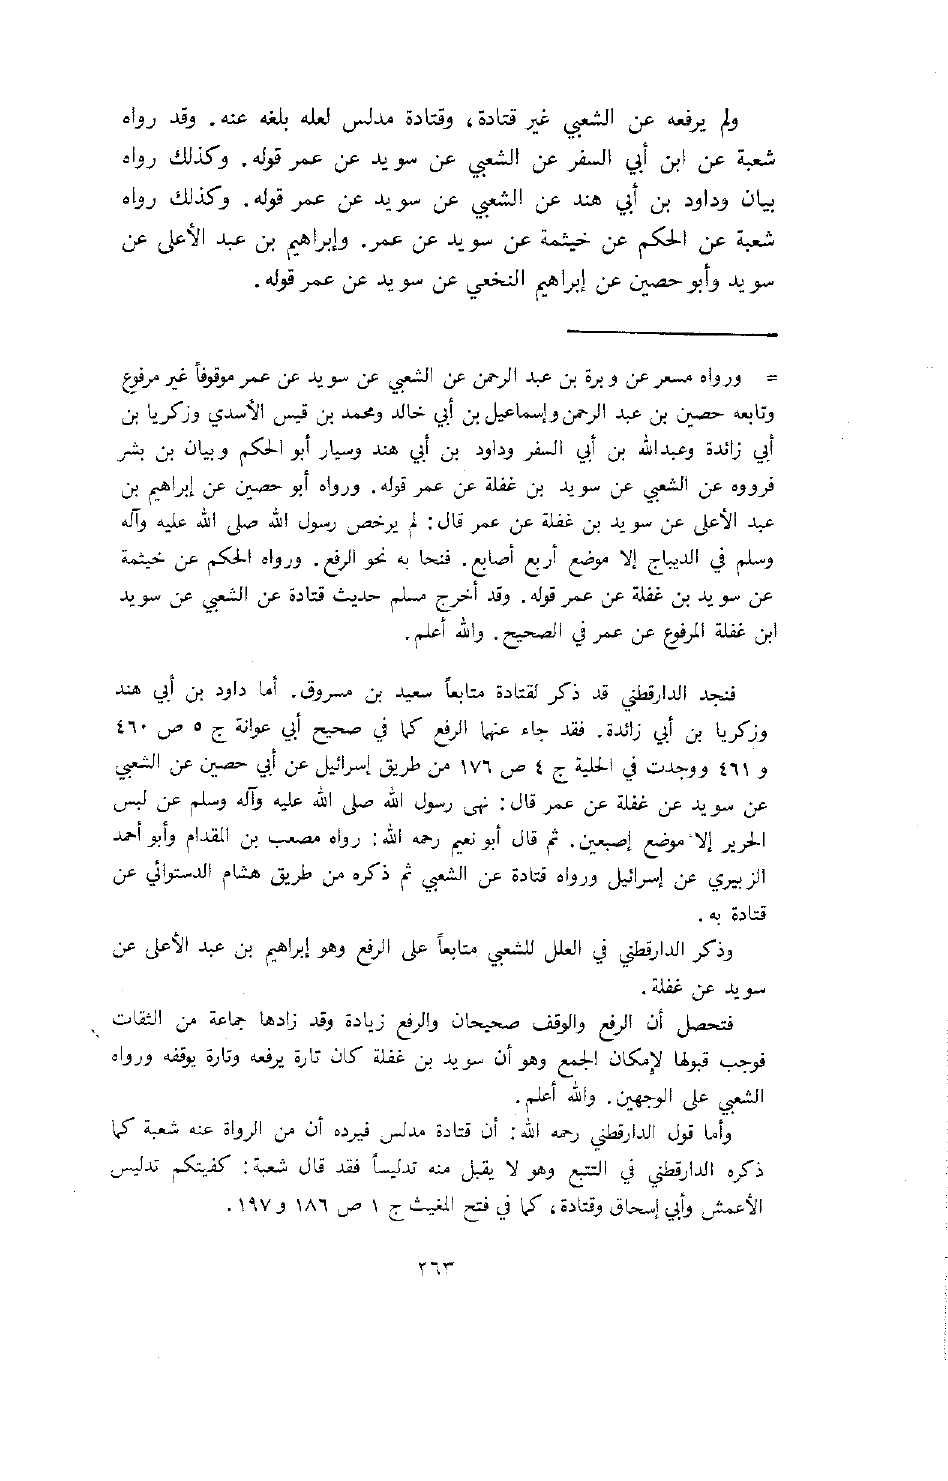 ولم يرفعه عن الشعبي غير قتادة، وقتادة مدلس لعله بلغه عنه. وقد رواه
شعبة عن ابن أبي السفر عن الشعبي عن سويد عن عمر قوله. وكذلك رواه
بيان وداود بن أبي هند عن الشعبي عن سويد عن عمر قوله. وكذلك رواه
شعبة عن الحكم عن خيثمة عن سويد عن عمر. وإبراهيم بن عبد الأعلى عن
سويد وأبو حصين عن إبراهيم النخعي عن سويد عن عمر قوله.
= ورواه مسعر عن وبرة بن عبد الرحمن عن الشعبي عن سويد عن عمر موقوفاً غير مرفوع
وتابعه حصين بن عبد الرحمن وإسماعيل بن أبي خالد ومحمد بن قيس الأسدي وزكريا بن
أبي زائدة وعبدالله بن أبي السفر وداود بن أبي هند وسيار أبو الحكم وبيان بن بشر
فرووه عن الشعبي عن سويد بن غفلة عن عمر قوله. ورواه أبو حصين عن إبراهيم بن
عبد الأعلى عن سويد بن غفلة عن عمر قال: لم يرخص رسول الله صلى الله عليه وآله
وسلم في الديباج إلا موضع أربع أصابع. فنحا به نحو الرفع. ورواه الحكم عن خيثمة
عن سويد بن غفلة عن عمر قوله. وقد أخرج مسلم حديث قتادة عن الشعبي عن سويد
ابن غفلة المرفوع عن عمر في الصحيح. والله أعلم.
فنجد الدارقطني قد ذكر لقتادة متابعاً سعيد بن مسروق. أما داود بن أبي هند
وزكريا بن أبي زائدة. فقد جاء عنها الرفع كما في صحيح أبي عوانة ج ٥ ص ٤٦٠
و ٤٦١ ووجدت في الحلية ج ٤ ص ١٧٦ من طريق إسرائيل عن أبي حصين عن الشعبي
عن سويد عن غفلة عن عمر قال: نهى رسول الله صلى الله عليه وآله وسلم عن لبس
الحرير إلا موضع إصبعين. ثم قال أبو نعيم رحمه الله: رواه مصعب بن المقدام وأبو أحمد
الزبيري عن إسرائيل ورواه قتادة عن الشعبي ثم ذكره من طريق هشام الدستوائي عن
قتادة به.
وذكر الدارقطني في العلل للشعبي متابعاً على الرفع وهو إبراهيم بن عبد الأعلى عن
سويد عن غفلة.
فتحصل أن الرفع والوقف صحيحان والرفع زيادة وقد زادها جماعة من الثقات
فوجب قبولها لإمكان الجمع وهو أن سويد بن غفلة كان تارة يرفعه وتارة يوقفه ورواه
الشعبي على الوجهين. والله أعلم.
وأما قول الدارقطني رحمه الله: أن قتادة مدلس فيرده أن من الرواة عنه شعبة كما
ذكره الدارقطني في التتبع وهو لا يقبل منه تدليساً فقد قال شعبة: كفيتكم تدليس
الأعمش وأبي إسحاق وقتادة، كما في فتح المغيث ج ١ ص ١٨٦ و ١٩٧.
٢٦٣